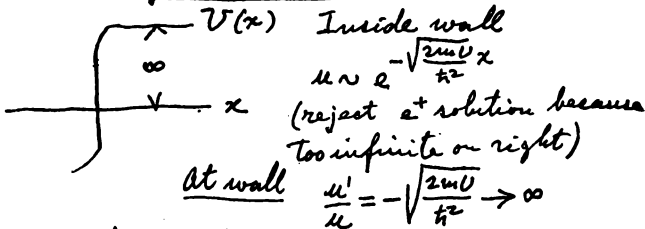 U(x) Inside wall
∞ u ~ e^{-√(2mU/ħ²) x}
x (reject e^+ solution because
too infinite on right)
At wall u'/u = -√(2mU/ħ²) → ∞